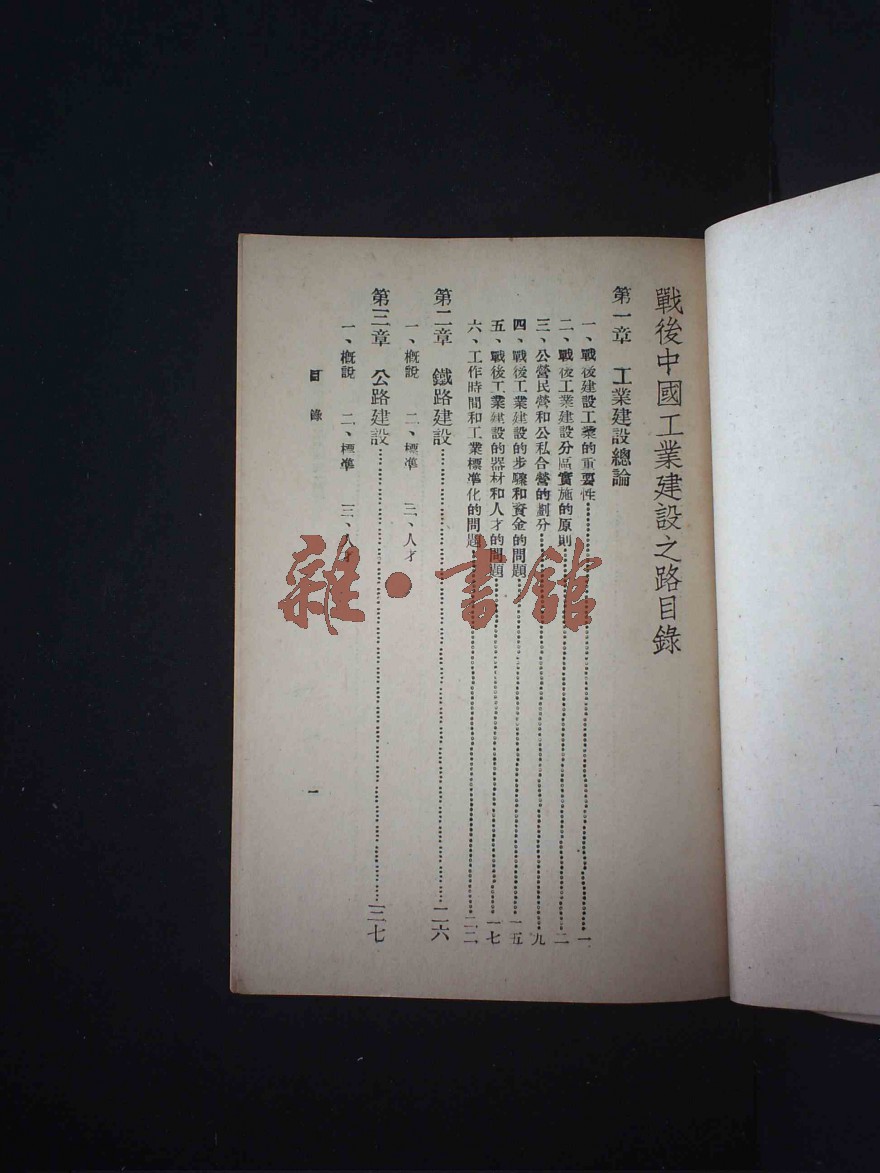 戰後中國工業建設之路目錄
第一章 工業建設總論
一、戰後建設工業的重要性……一
二、戰後工業建設分區實施的原則……二
三、公營民營和公私合營的劃分……九
四、戰後工業建設的步驟和資金的問題……一五
五、戰後工業建設的器材和人才的問題……一七
六、工作時間和工業標準化的問題……二二
第二章 鐵路建設……二六
一、概說 二、標準 三、人才
第三章 公路建設……三七
一、概說 二、標準 三、人才
目錄
一
雜·書館